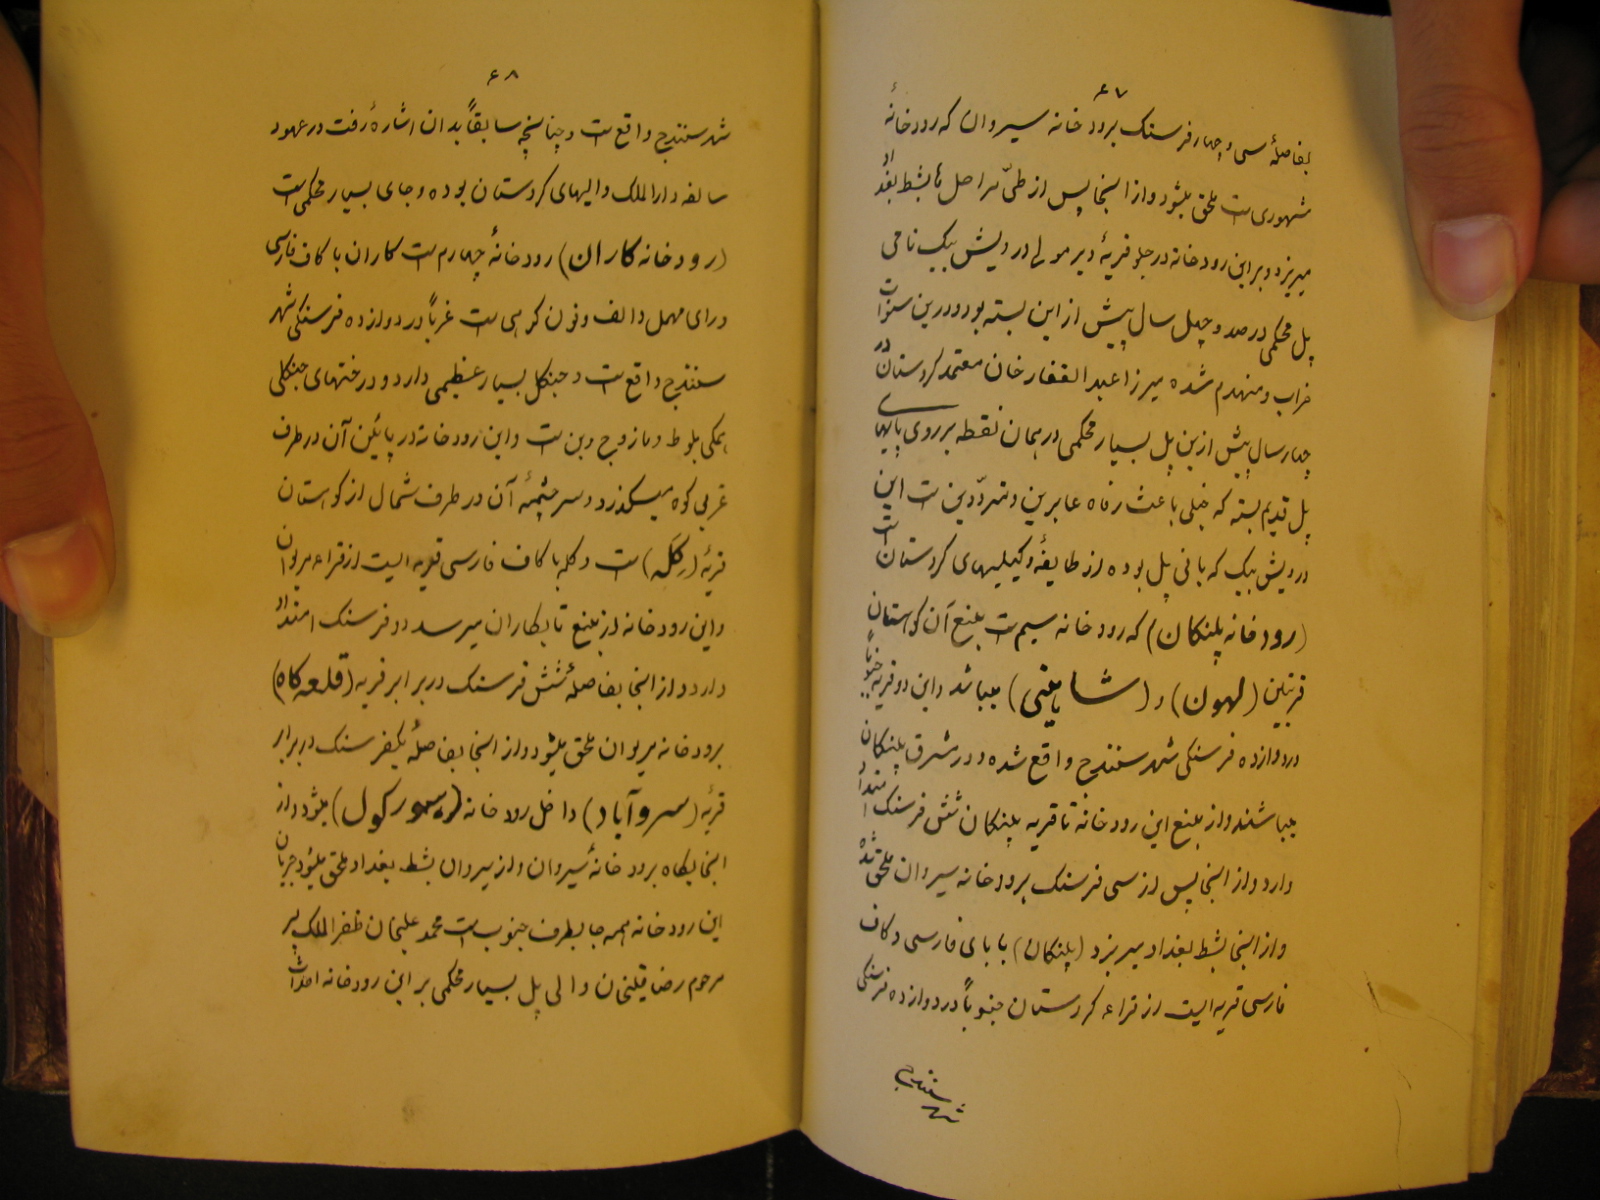 ۶۷
بفاصلهٔ سی و چهار فرسنک برود خانه سیروان که رودخانهٔ
مشهوری است ملحق میشود و از اینجا پس از طیّ مراحل بشط بغداد
میریزد و بر این رودخانه در جلو قریهٔ دیر مولی درویش بیک نامی
پل محکمی در صد و چهل سال پیش از این بسته بود و درین سنوات
خراب و منهدم شده میرزا عبدالغفار خان معتمد کردستان در
چهار سال پیش ازین پل بسیار محکمی در همان نقطه بر روی پایهای
پل قدیم بسته که خیلی باعث رفاه عابرین و متردّدین است این
درویش بیک که بانی پل بوده از طایفهٔ وکیلیهای کردستان است
(رودخانه پلنکان) که رودخانه سیم است منبع آن کوهستان
قریتین (لهون) و (شاینی) میباشد و این دو قریه جنوباً
در دوازده فرسنکی شهر سنندج واقع شده و در مشرق پلنکان
میباشند و از منبع این رودخانه تا قریه پلنکان شش فرسنک امتداد
دارد و از اینجا پس از سی فرسنک برودخانه سیروان ملحق شده
و از اینجا بشط بغداد میریزد (پلنکان) با بای فارسی و کاف
فارسی قریه ایست از قراء کردستان جنوباً در دوازده فرسنکی
شهر سنندج
۶۸
شهر سنندج واقع است و چنانچه سابقاً بدان اشاره رفت در عهود
سالفه دارالملک والیهای کردستان بوده و جای بسیار محکمی است
(رودخانه کاران) رودخانهٔ چهارم است کاران با کاف فارسی
و رای مهمل و الف و نون کوهی است غرباً در دوازده فرسنکی شهر
سنندج واقع است و جنکل بسیار عظیمی دارد و درختهای جنکلی
همکی بلوط و مازوج و بن است و این رودخانه در پائین آن در طرف
غربی کوه میکذرد و سرچشمهٔ آن در طرف شمال از کوهستان
قریهٔ (کله) است و کله با کاف فارسی قریه ایست از قراء مریوان
و این رودخانه از منبع تا بکاران میرسد دو فرسنک امتداد
دارد و از اینجا بفاصلهٔ شش فرسنک در برابر قریه (قلعه کاه)
برودخانه مریوان ملحق میشود و از اینجا بفاصلهٔ یکفرسنک در برابر
قریهٔ (سروآباد) داخل رودخانه (ره سور کول) میشود و از
اینجا یکاه برودخانهٔ سیروان و از سیروان بشط بغداد ملحق میشود جریان
این رودخانه همه جا بطرف جنوب است محمد علیخان ظفرالملک پسر
مرحوم رضاقلیخان والی پل بسیار محکمی بر این رودخانه احداث